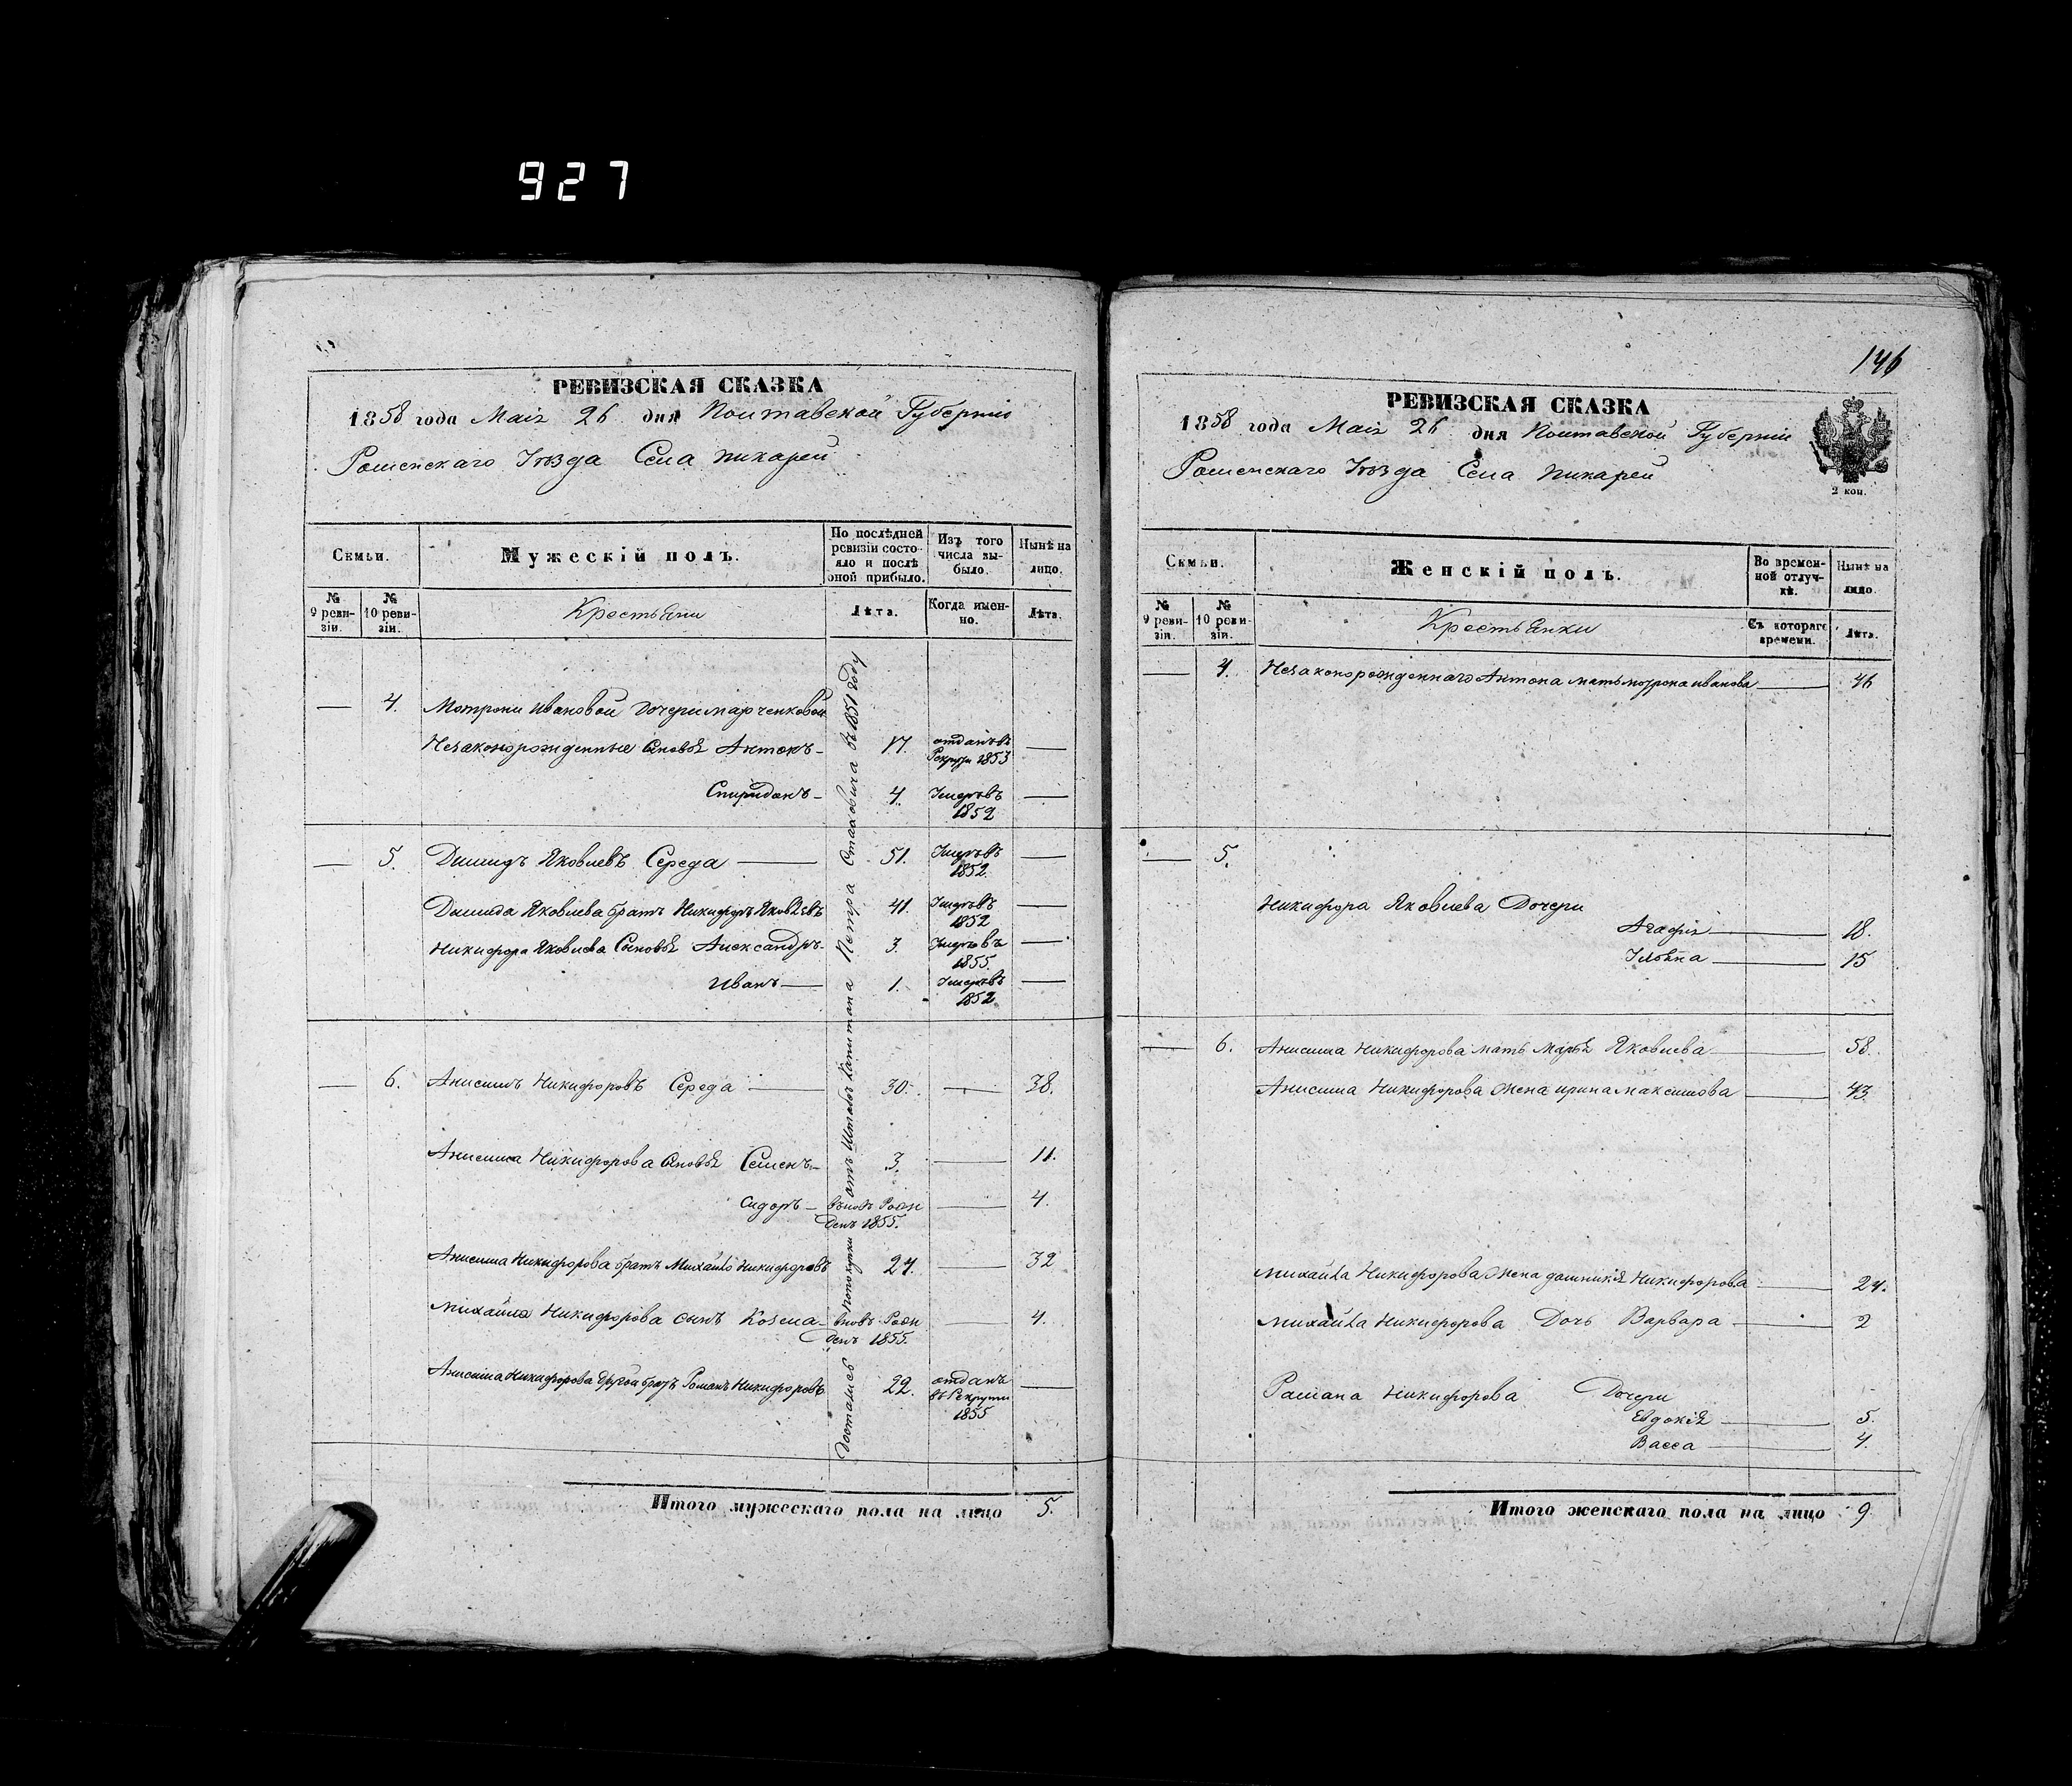 927
РЕВИЗСКАЯ СКАЗКА
1858 года Маія 26 дня Полтавской Губерніи
Роменскаго Уѣзда Села Пикарей
Семьи.
Мужескій полъ.
По послѣдней ревизіи состояло и послѣ оной прибыло.
Изъ того числа выбыло.
Нынѣ на лицо.
№ 9 ревизіи.
№ 10 ревизіи.
Крестьяни
Лѣта.
Когда именно.
Лѣта.
4. Мотрони Ивановой дочери марченковой
Незаконорожденные сыновья Антонъ 17. отданъ въ Рекруты 1853
Спиридонъ 4. Умеръ въ 1852
5. Демидъ Яковлевъ Середа 51. Умеръ въ 1852.
Демида Яковлева братъ Никифоръ Яковлевъ 41. Умеръ въ 1852
Никифора Яковлева Сыновья Александръ 3. Умеръ въ 1855.
Иванъ 1. Умеръ въ 1852
6. Анисимъ Никифоровъ Середа 30. 38.
Анисима Никифорова сыновья Семенъ 3. 11.
Сидоръ вновь Рожденъ 1855. 4.
Анисима Никифорова братъ Михайло Никифоровъ 24. 32
Михайла Никифорова сынъ Козьма вновь Рожденъ 1855. 4.
Анисима Никифорова другой братъ Романъ Никифоровъ 22. отданъ въ Рекруты 1855
Достались покупки отъ Штабсъ Капитана Петра Стаховича въ 1851 году
Итого мужескаго пола на лицо 5.
146
РЕВИЗСКАЯ СКАЗКА
1858 года Маія 26 дня Полтавской Губерніи
Роменскаго Уѣзда Села Пикарей
2 коп.
Семьи.
Женскій полъ.
Во временной отлучкѣ.
Нынѣ на лицо.
№ 9 ревизіи.
№ 10 ревизіи.
Крестьянки
Съ котораго времени.
Лѣта.
4. Незаконорожденнаго Антона мать мотрона иванова 46
5.
Никифора Яковлева Дочери
Агафія 18.
Ульяна 15
6. Анисима Никифорова мать Марья Яковлева 58.
Анисима Никифорова жена ирина максимова 43.
Михайла Никифорова жена домникія Никифорова 24.
Михайла Никифорова Дочь Варвара 2
Романа Никифорова Дочери
Евдокія 5.
Васса 4.
Итого женскаго пола на лицо 9